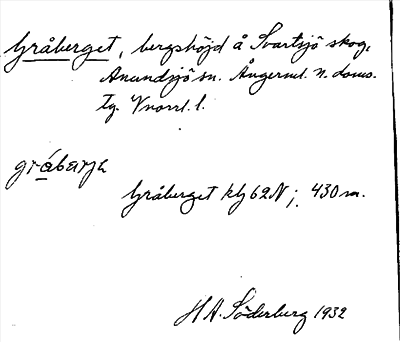 Gråberget, bergshöjd å Svartsjö skog,
Anundsjö sn. Ångerml. n. doms.
tg. Vnorrl. l.
gråbærjə
Gråberget kbl 62N; 430 m.
H A. Söderberg 1932